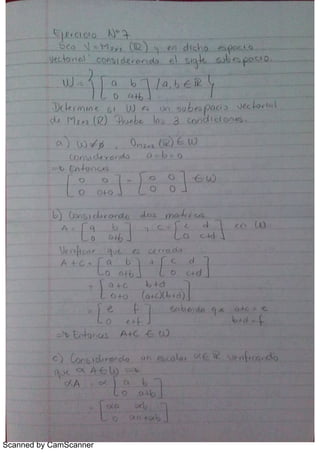 Ejercicio N° 7
Sea V = M2x2 (R) y en dicho espacio
vectorial considerando el sigte subespacio.
W = { [ a b ] / a, b ∈ R }
[ 0 a+b ]
Determine si W es un subespacio vectorial
de M2x2 (R) Pruebe las 3 condiciones.
a) W ≠ ∅ , O2x2 (R) ∈ W
Considerando a = b = 0
⇒ Entonces
[ 0 0 ] = [ 0 0 ] ∈ W
[ 0 0+0 ] [ 0 0 ]
b) Considerando dos matrices
A = [ a b ] , C = [ c d ] en W
[ 0 a+b ] [ 0 c+d ]
Verificar que es cerrado
A + C = [ a b ] + [ c d ]
[ 0 a+b ] [ 0 c+d ]
= [ a+c b+d ]
[ 0+0 (a+c)(b+d) ]
= [ e f ] sabiendo que a+c = e
[ 0 e+f ] b+d = f
⇒ Entonces A+C ∈ W
c) Considerando un escalar α ∈ R verificando
que α A ∈ W ⇒
αA = α [ a b ]
[ 0 a+b ]
= [ αa αb ]
[ 0 αa+αb ]
Scanned by CamScanner